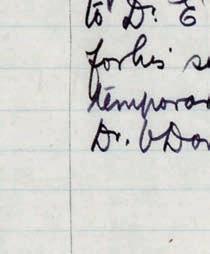 to Dr. E
for his s
temporar
Dr. O'Don